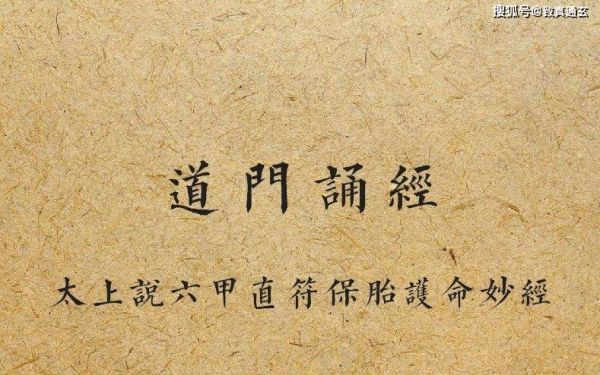 搜狐号@致真通玄
道門誦經
太上說六甲直符保胎護命妙經